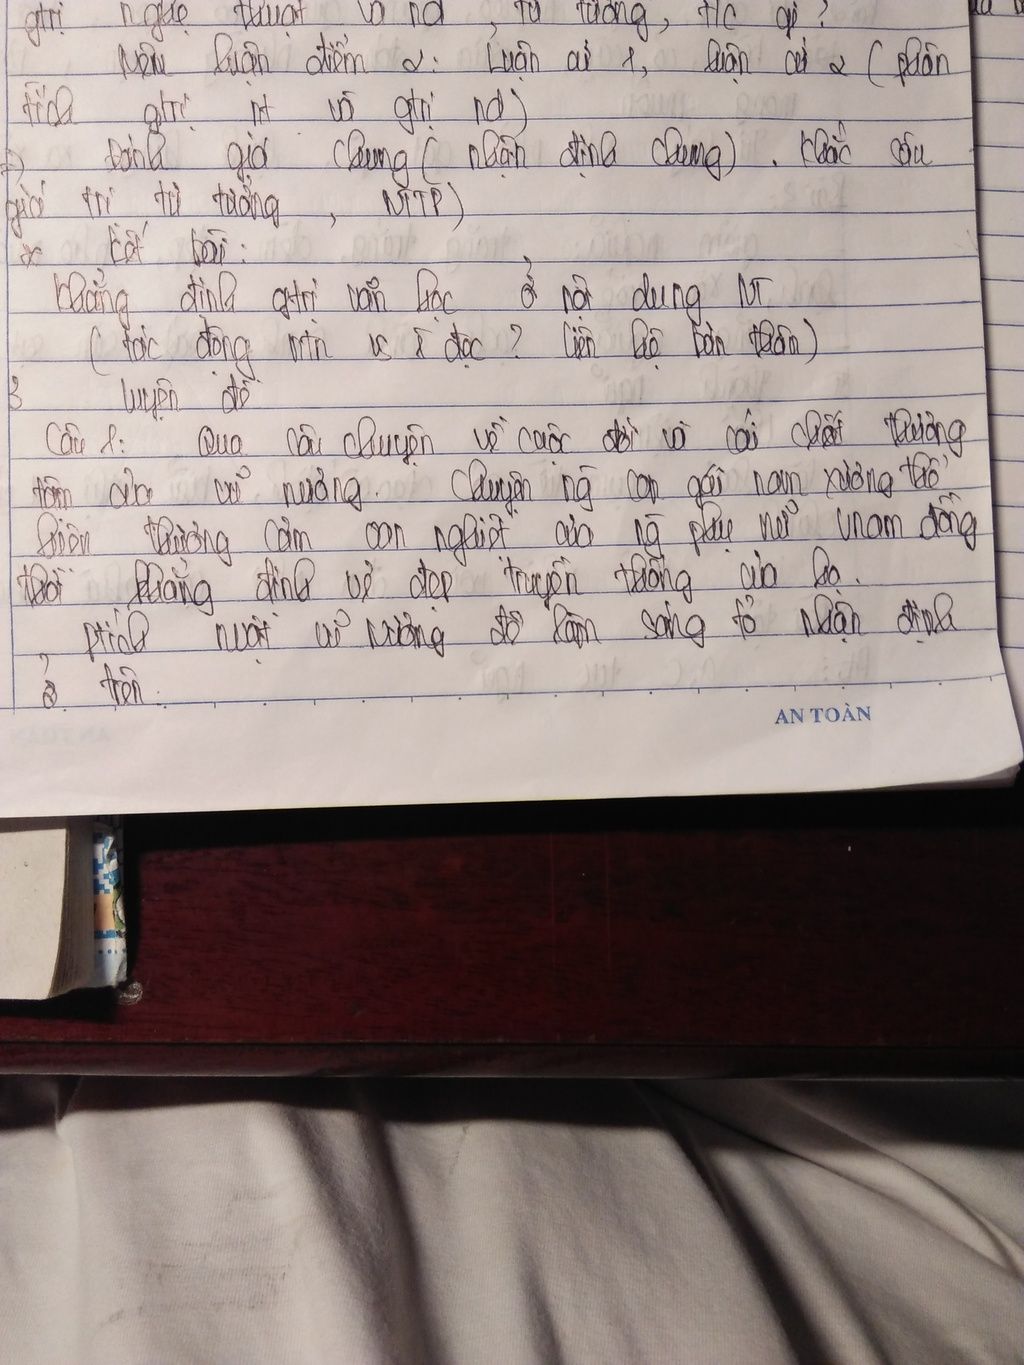 gtrị nghệ thuật và nd, tư tưởng, t/c gì?
Nêu luận điểm 2: Luận cứ 1, luận cứ 2 (phân
tích gtrị nt và gtrị nd)
đánh giá chung (nhận định chung). khắc sâu
giá trị tư tưởng, NTTP)
* kết bài:
khẳng định gtrị văn học ở nội dung NT
(tác động ntn vs đọc? liên hệ bản thân)
3 luyện đề
Câu 1: Qua câu chuyện về cuộc đời và cái chết thương
tâm của vũ nương. Chuyện ng con gái nam xương thể
hiện thương cảm con nghiệt của ng phụ nữ vnam đồng
thời khẳng định vẻ đẹp truyền thống của họ.
ptích nvật vũ nương để làm sáng tỏ nhận định
ở trên.
AN TOÀN